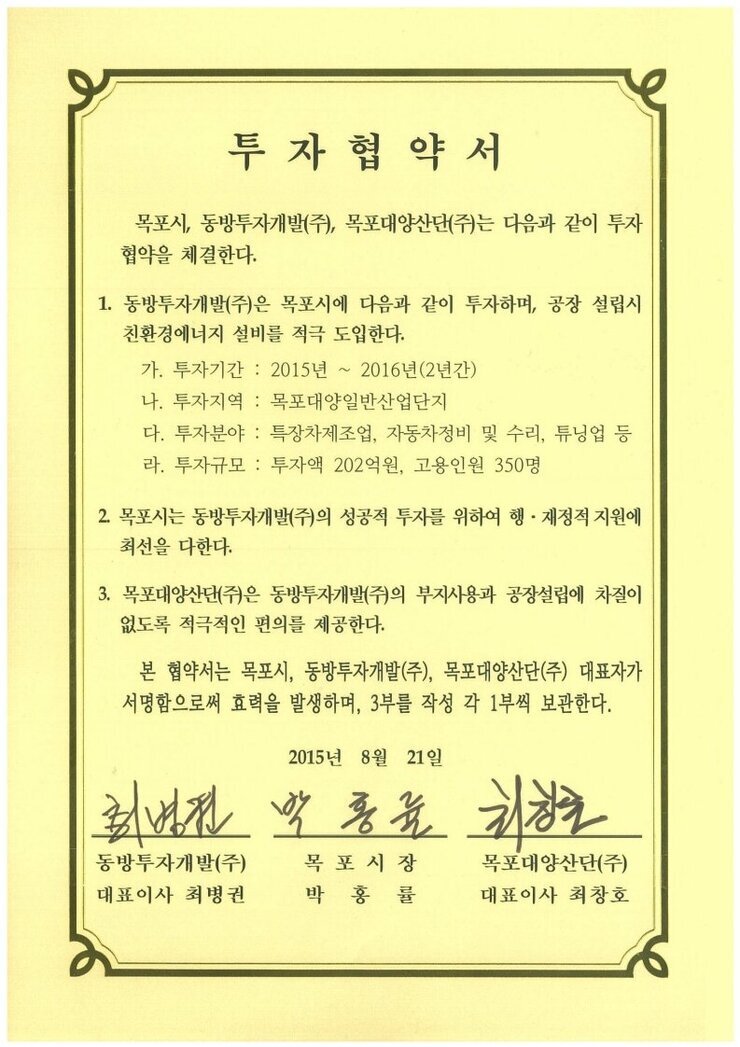 투 자 협 약 서
목포시, 동방투자개발(주), 목포대양산단(주)는 다음과 같이 투자
협약을 체결한다.
1. 동방투자개발(주)은 목포시에 다음과 같이 투자하며, 공장 설립시
친환경에너지 설비를 적극 도입한다.
가. 투자기간 : 2015년 ~ 2016년(2년간)
나. 투자지역 : 목포대양일반산업단지
다. 투자분야 : 특장차제조업, 자동차정비 및 수리, 튜닝업 등
라. 투자규모 : 투자액 202억원, 고용인원 350명
2. 목포시는 동방투자개발(주)의 성공적 투자를 위하여 행·재정적 지원에
최선을 다한다.
3. 목포대양산단(주)은 동방투자개발(주)의 부지사용과 공장설립에 차질이
없도록 적극적인 편의를 제공한다.
본 협약서는 목포시, 동방투자개발(주), 목포대양산단(주) 대표자가
서명함으로써 효력을 발생하며, 3부를 작성 각 1부씩 보관한다.
2015년 8월 21일
최병권 박홍률 최창호
동방투자개발(주) 목 포 시 장 목포대양산단(주)
대표이사 최병권 박 홍 률 대표이사 최창호